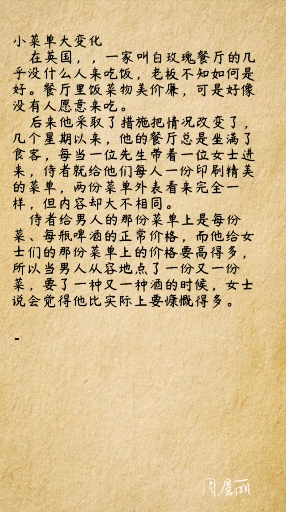 小菜单大变化
在英国，，一家叫白玫瑰餐厅的几
乎没什么人来吃饭，老板不知如何是
好。餐厅里饭菜物美价廉，可是好像
没有人愿意来吃。
后来他采取了措施把情况改变了，
几个星期以来，他的餐厅总是坐满了
食客，每当一位先生带着一位女士进
来，侍者就给他们每人一份印刷精美
的菜单，两份菜单外表看来完全一
样，但内容却大不相同。
侍者给男人的那份菜单上是每份
菜、每瓶啤酒的正常价格，而他给女
士们的那份菜单上的价格要高得多，
所以当男人从容地点了一份又一份
菜，要了一种又一种酒的时候，女士
说会觉得他比实际上要慷慨得多。
-